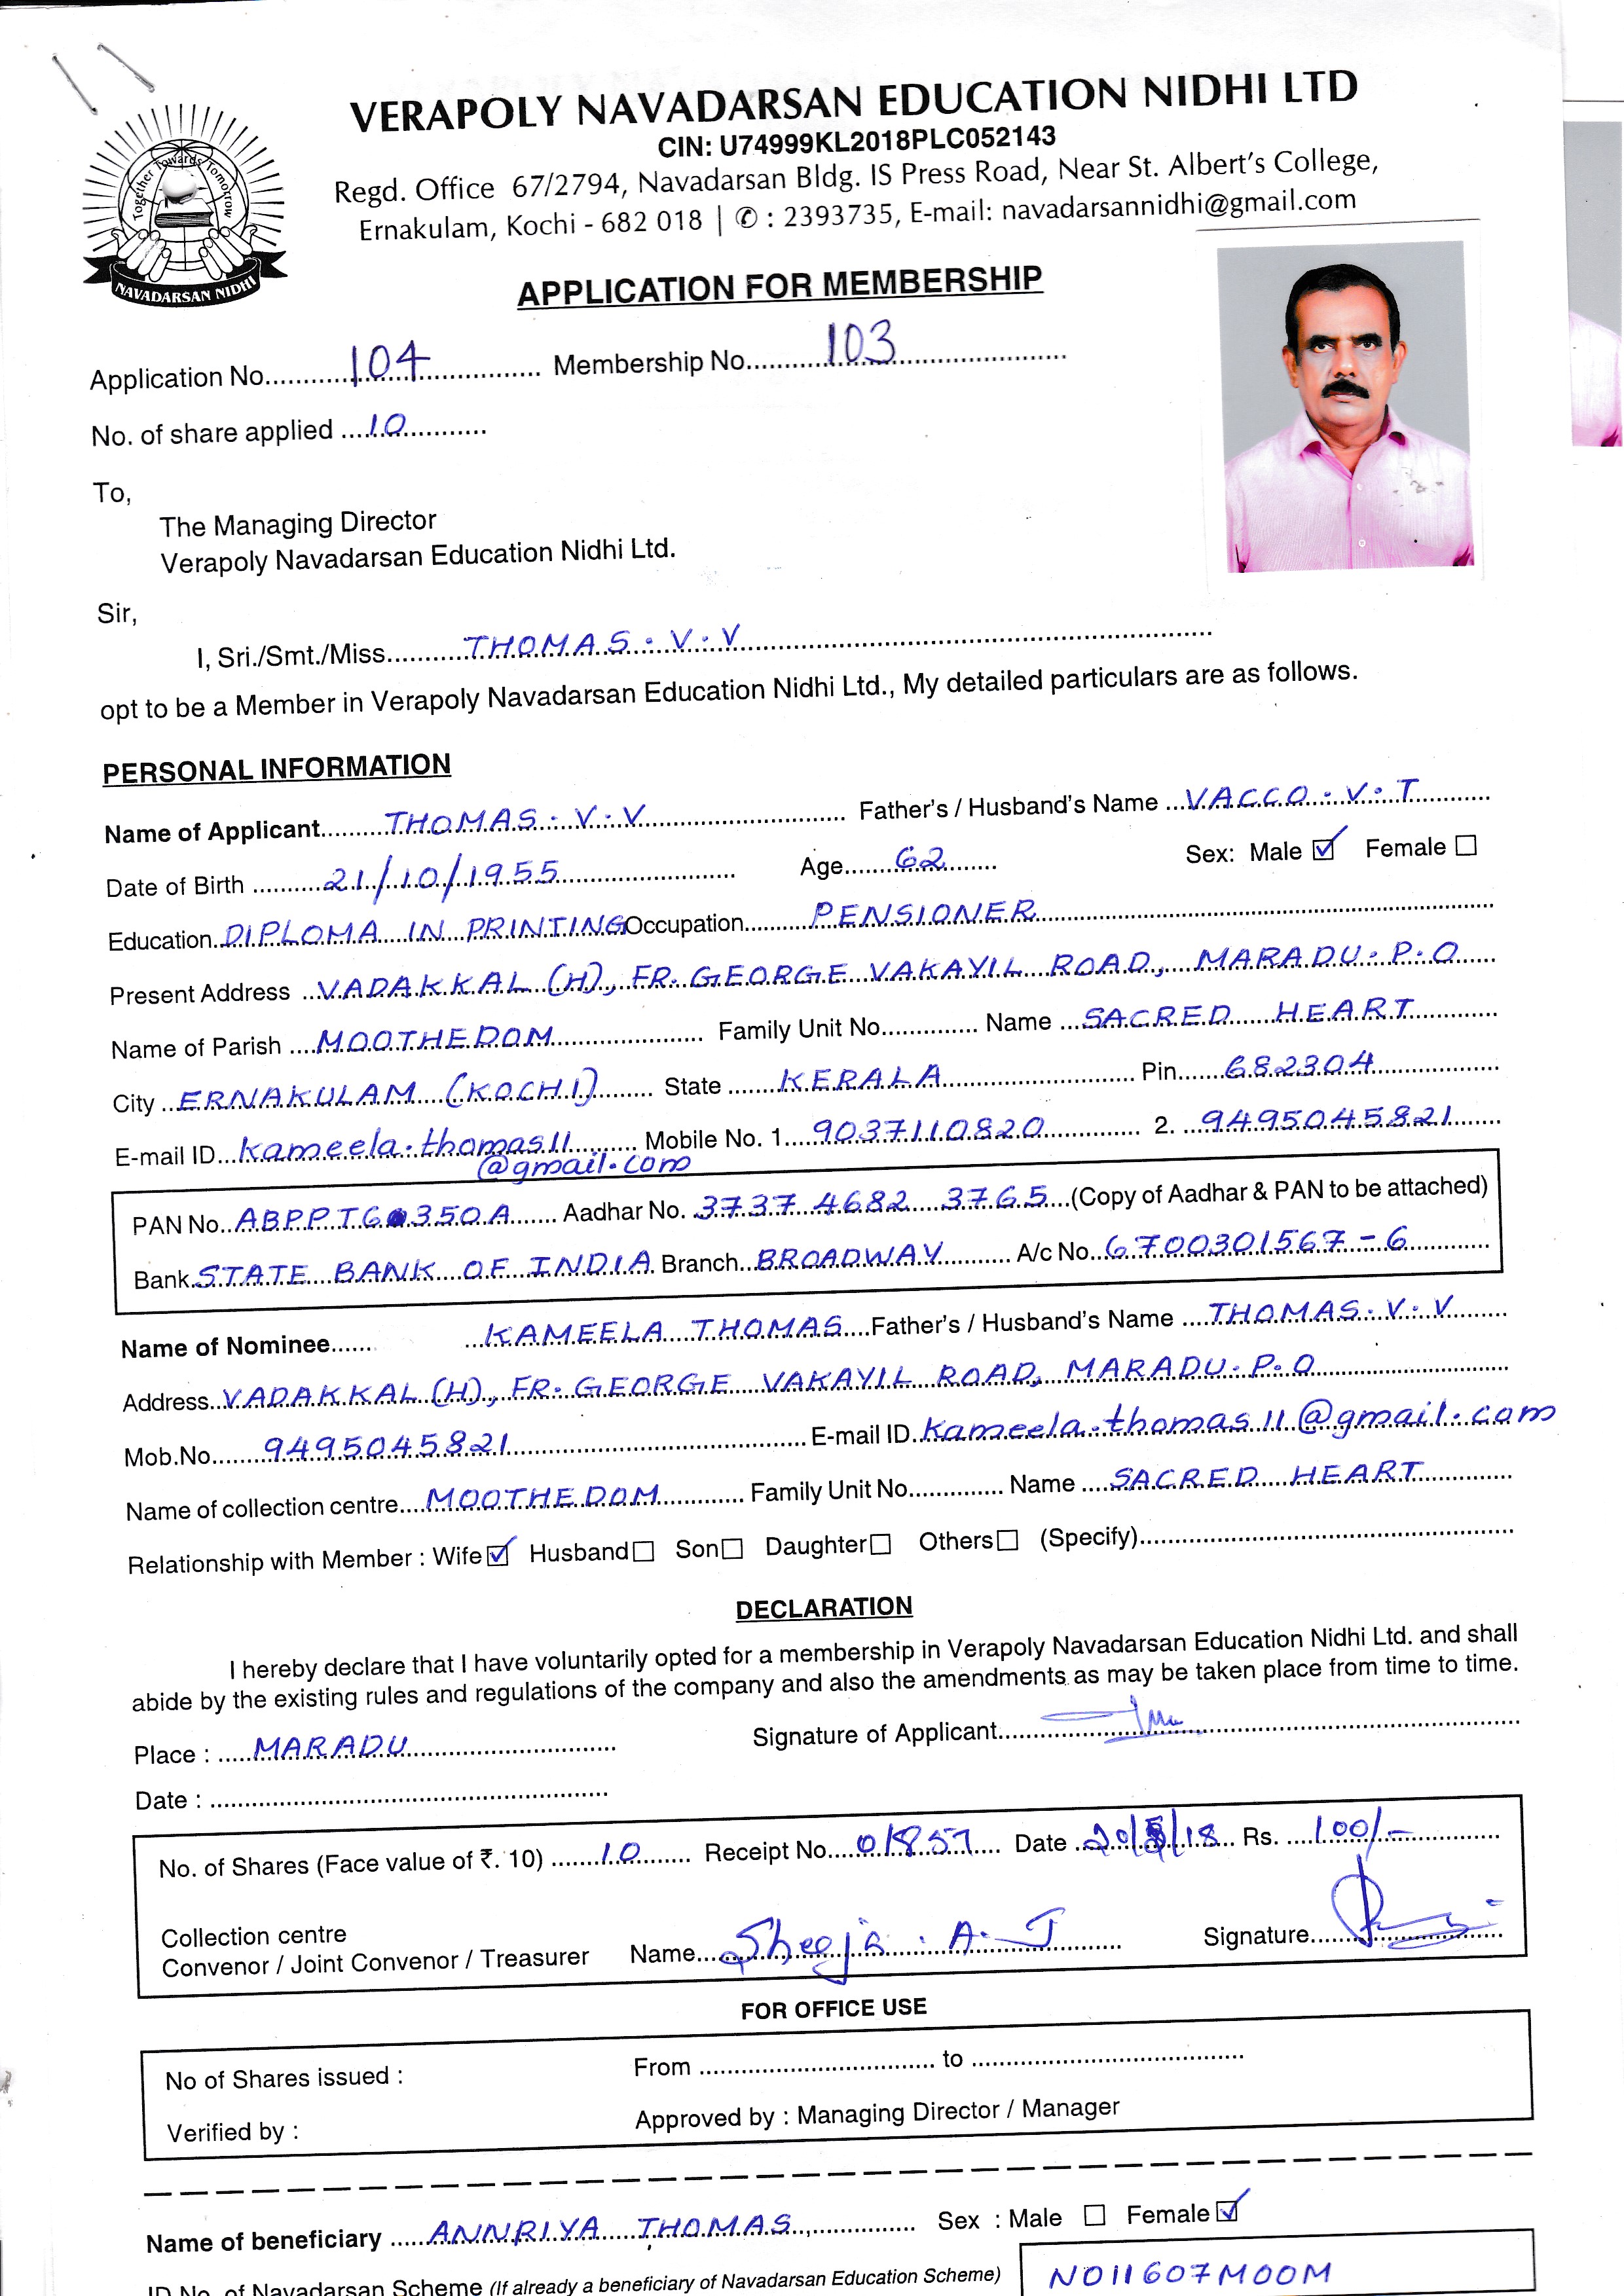 VERAPOLY NAVADARSAN EDUCATION NIDHI LTD
CIN: U74999KL2018PLC052143
Regd. Office 67/2794, Navadarsan Bldg. IS Press Road, Near St. Albert's College,
Ernakulam, Kochi - 682 018 | ✆ : 2393735, E-mail: navadarsannidhi@gmail.com
Together Towards Tomorrow
NAVADARSAN NIDHI
APPLICATION FOR MEMBERSHIP
Application No. 104 Membership No. 103
No. of share applied 10
To,
The Managing Director
Verapoly Navadarsan Education Nidhi Ltd.
Sir,
I, Sri./Smt./Miss THOMAS. V. V
opt to be a Member in Verapoly Navadarsan Education Nidhi Ltd., My detailed particulars are as follows.
PERSONAL INFORMATION
Name of Applicant THOMAS. V. V Father's / Husband's Name VACCO. V. T
Date of Birth 21/10/1955 Age 62 Sex: Male ☑ Female ☐
Education DIPLOMA IN PRINTING Occupation PENSIONER
Present Address VADAKKAL (H), FR. GEORGE VAKAYIL ROAD, MARADU. P.O
Name of Parish MOOTHEDOM Family Unit No. Name SACRED HEART
City ERNAKULAM (KOCHI) State KERALA Pin 682304
E-mail ID kameela.thomas11 Mobile No. 1 9037110820 2. 9495045821
@gmail.com
PAN No. Aadhar No. 3737 4682 3765 (Copy of Aadhar & PAN to be attached)
Bank STATE BANK OF INDIA Branch BROADWAY A/c No. 6700301567-6
Name of Nominee KAMEELA THOMAS Father's / Husband's Name THOMAS. V. V
Address VADAKKAL (H), FR. GEORGE VAKAYIL ROAD, MARADU. P.O
Mob.No. 9495045821 E-mail ID kameela.thomas11@gmail.com
Name of collection centre MOOTHEDOM Family Unit No. Name SACRED HEART
Relationship with Member : Wife ☑ Husband ☐ Son ☐ Daughter ☐ Others ☐ (Specify)
DECLARATION
I hereby declare that I have voluntarily opted for a membership in Verapoly Navadarsan Education Nidhi Ltd. and shall
abide by the existing rules and regulations of the company and also the amendments as may be taken place from time to time.
Place : MARADU Signature of Applicant
Date :
No. of Shares (Face value of ₹. 10) 10 Receipt No. 01857 Date Rs. 100/-
Collection centre
Convenor / Joint Convenor / Treasurer Name Sheeja. A. J Signature
FOR OFFICE USE
No of Shares issued : From to
Verified by : Approved by : Managing Director / Manager
Name of beneficiary ANNRIYA THOMAS Sex : Male ☐ Female ☑
ID No. of Navadarsan Scheme (If already a beneficiary of Navadarsan Education Scheme) NO11607MOOM